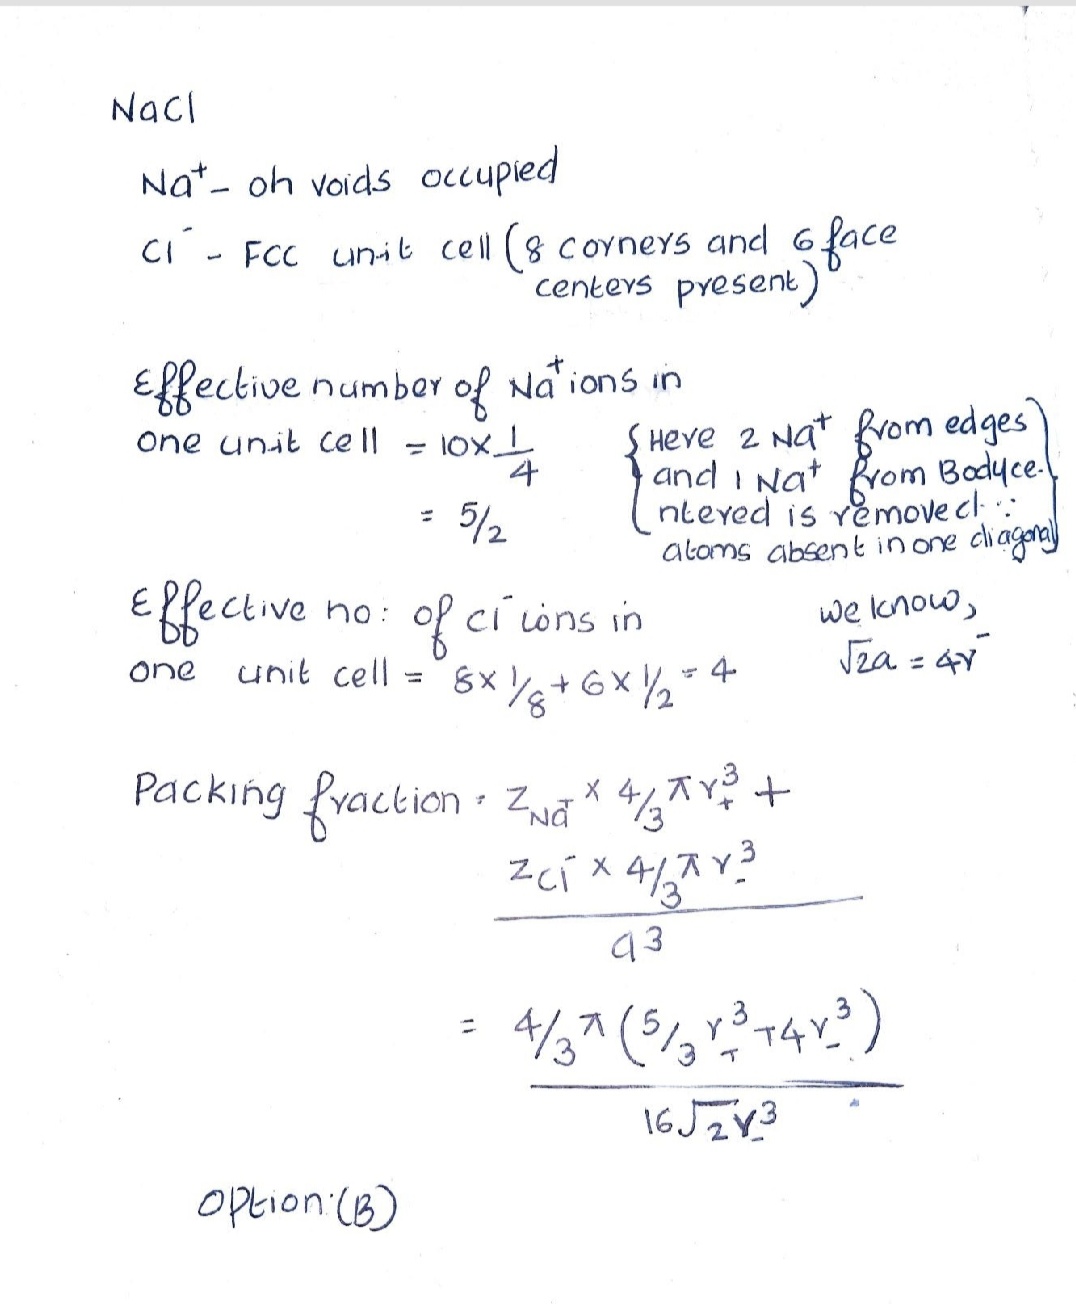 NaCl
Na⁺ - oh voids occupied
Cl⁻ - FCC unit cell (8 corners and 6 face
centers present)
Effective number of Na⁺ ions in
one unit cell = 10 x 1/4
= 5/2
{Here 2 Na⁺ from edges
and 1 Na⁺ from Bodyce-
ntered is removed ∵
atoms absent in one diagonal}
Effective no: of Cl⁻ ions in
one unit cell = 8 x 1/8 + 6 x 1/2 = 4
we know,
√2a = 4r⁻
Packing fraction = Z_Na⁺ x 4/3 πr₊³ +
Z_Cl⁻ x 4/3 πr₋³
a³
= 4/3 π (5/3 r₊³ + 4r₋³)
16√2 r₋³
Option:(B)